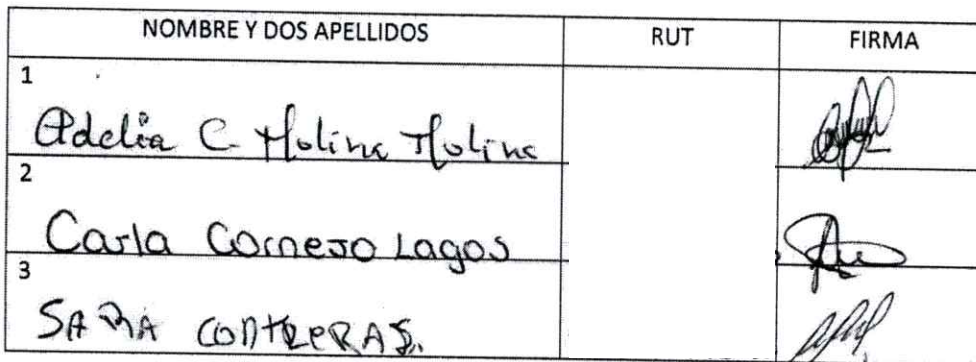 NOMBRE Y DOS APELLIDOS RUT FIRMA
1
Adelia C Molina Molina
2
Carla Cornejo Lagos
3
SARA CONTRERAS.